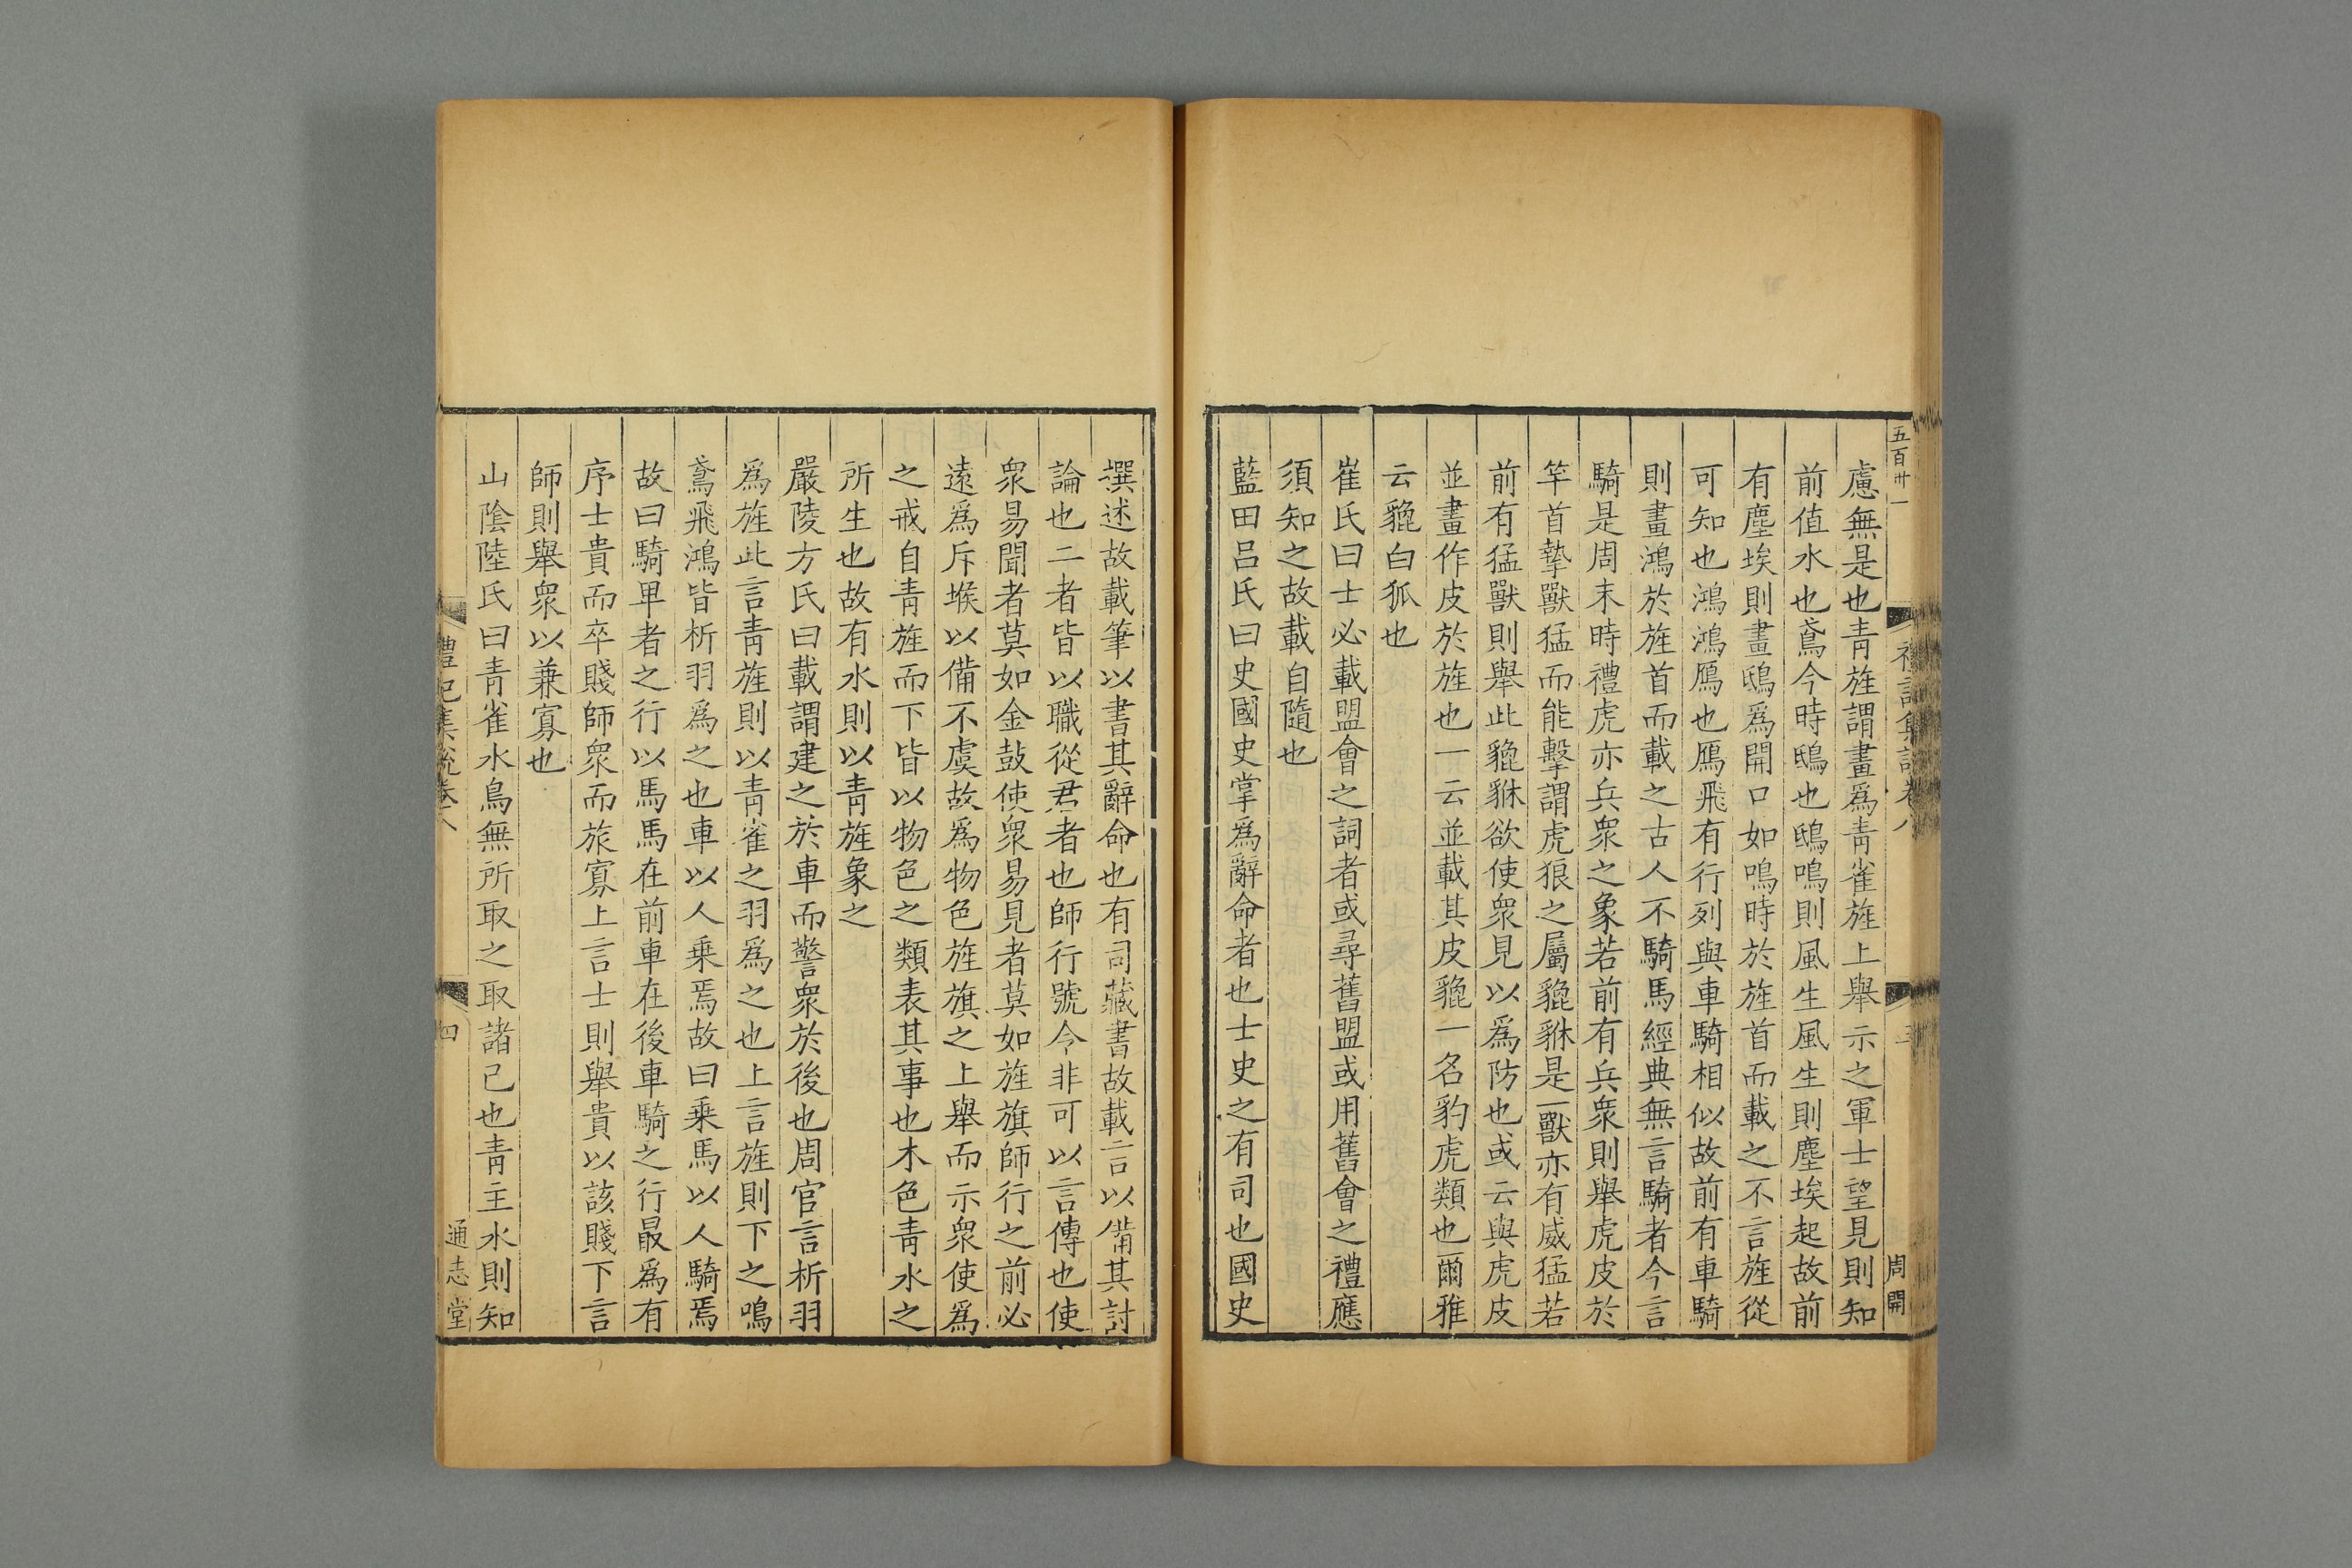 五百卅一
周開
慮無是也青旌謂畫爲青雀旌上舉示之軍士望見則知
前值水也鳶今時鴟也鴟鳴則風生風生則塵埃起故前
有塵埃則畫鴟爲開口如鳴時於旌首而載之不言旌從
可知也鴻鴻鴈也鴈飛有行列與車騎相似故前有車騎
則畫鴻於旌首而載之古人不騎馬經典無言騎者今言
騎是周末時禮虎亦兵衆之象若前有兵衆則舉虎皮於
竿首摯獸猛而能擊謂虎狼之屬貔貅是一獸亦有威猛若
前有猛獸則舉此貔貅欲使衆見以爲防也或云與虎皮
並畫作皮於旌也一云並載其皮貔一名豹虎類也爾雅
云貔白狐也
崔氏曰士必載盟會之詞者或尋舊盟或用舊會之禮應
須知之故載自隨也
藍田呂氏曰史國史掌爲辭命者也士史之有司也國史
撰述故載筆以書其辭命也有司藏書故載言以備其討
論也二者皆以職從君者也師行號令非可以言傳也使
衆易聞者莫如金鼓使衆易見者莫如旌旗師行之前必
遠爲斥堠以備不虞故爲物色旌旗之上舉而示衆使爲
之戒自青旌而下皆以物色之類表其事也木色青水之
所生也故有水則以青旌象之
嚴陵方氏曰載謂建之於車而警衆於後也周官言析羽
爲旌此言青旌則以青雀之羽爲之也上言旌則下之鳴
鳶飛鴻皆析羽爲之也車以人乗焉故曰乗馬以人騎焉
故曰騎畢者之行以馬馬在前車在後車騎之行最爲有
序士貴而卒賤師衆而旅寡上言士則舉貴以該賤下言
師則舉衆以兼寡也
山陰陸氏曰青雀水鳥無所取之取諸己也青主水則知
禮記集說卷八
四
通志堂